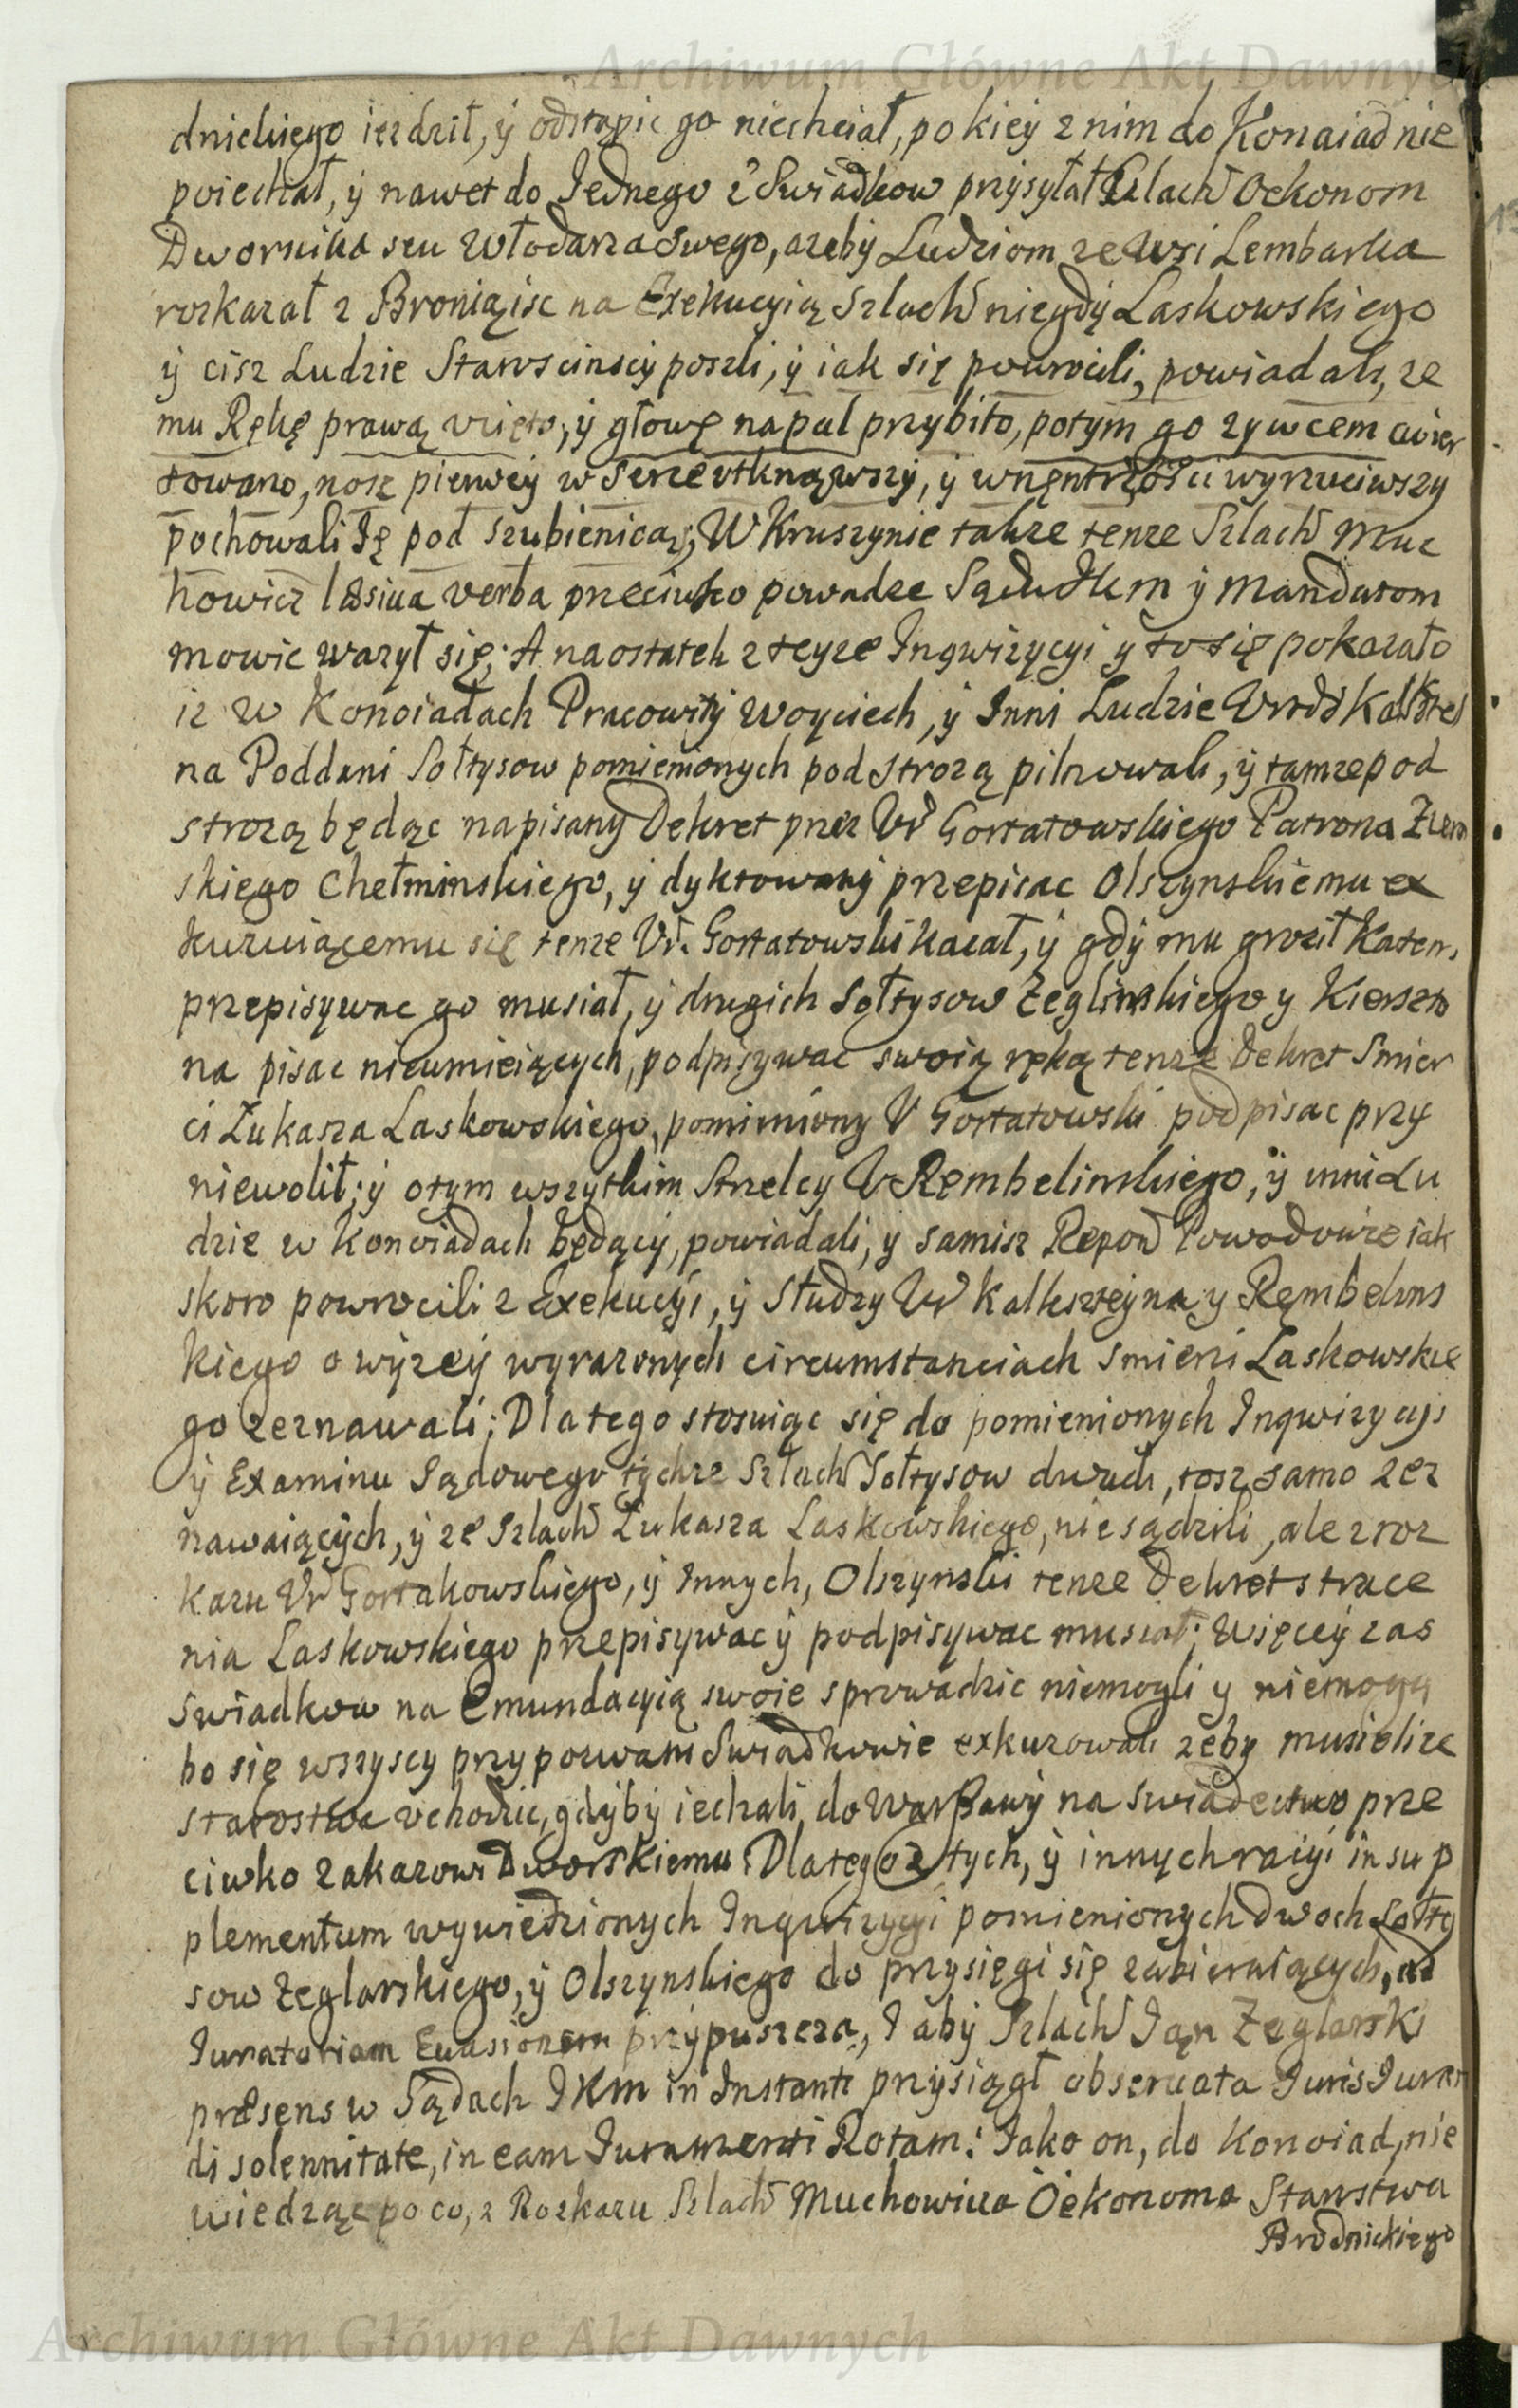 Archiwum Główne Akt Dawnych
dnickiego iezdził, ÿ odstąpic go niechciał, pokieÿ z nim do Konaiad nie
poiechał, ÿ nawet do Jednego z Swiadkow przysyłał Szlach Oekonom
Dwornika seu Włodarza swego, azebÿ Ludziom ze Wsi Lembarka
rozkazał z Bronią isc na Exekucyią Szlach niegdÿ Laskowskiego
ÿ cisz Ludzie Staroscinscÿ poszli, ÿ iak się powrocili, powiadali, ze
mu Rękę prawą ucięto, ÿ głowę na pal przybito, potÿm go zywcem cwier
towano, nosz pierweÿ w Serce utknąwszÿ, ÿ wnęntrzosci wyrzuciwszy
pochowali Ję pod szubienicaą; W Kruszynie takze tenze Szlach Muc
howicz læsiua verba przeciwko powadze SąduJkm ÿ Mandatom
mowic wazył się; A naostatek z teyze Inqwizycyi ÿ to się pokazało
iz w Konoiadach Pracowitÿ Woyciech, ÿ Inni Ludzie Urod Kalkstei
na Poddani Sołtysow pomienionych pod strozą pilnowali, ÿ tamze pod
strozą będąc napisanÿ Dekret przez Ur Gortatowskiego Patrona Ziem
skiego Chełminskiego, ÿ dyktowanÿ przepisac Olszynskiemu ex
kuzuiącemu się tenze Ur. Gortatowski kazał, ÿ gdÿ mu groził Katem,
przepisÿwac go musiał, ÿ drugich Sołtysow Zeglinskiego y Kierszto
na pisac nieumieiących, podpisÿwac swoią ręką tenze Dekret Smier
ci Łukasza Laskowskiego, pomieniony U Gortatowski podpisac przy
niewolił; ÿ otym wszytkim Strzelcy U Rembelinskiego, ÿ inni Lu
dzie w Konoiadach będącÿ, powiadali, y samisz Repow Powodowie iak
skoro powrocili z Exekucÿi, ÿ Słudzy Ur Kalkszteÿna y Rembelins
kiego o wÿzeÿ wyrazonych circumstanciach smierci Laskowskie
go zeznawali; Dlatego stosuiąc się do pomienionych Inqwizycyi
ÿ Examinu Sądowego tÿchze Szlach Sołtysow dwuch, tosz samo zez
nawaiącÿch, ÿ ze Szlach Łukasza Laskowskiego, nie sądzili, ale z roz
kazu Ur Gortakowskiego, ÿ Innych, Olszynski tenze Dekret strace
nia Laskowskiego przepisywac ÿ podpisywac musiał; Więceÿ zas
Swiadkow na Emundacyią swoie sprowadzic niemogli y niemogą
bo się wszyscy przypozwani Swiadkowie exkuzowali zeby musieli ze
starostwa uchodic, gdÿbÿ iechali do Warszawÿ na swiadectwo prze
ciwko zakazowi Dworskiemu Dlatego z tych, ÿ innych raciÿi in sup
plementum wywiedzionych Inqwizycyi pomienionych dwoch Sołty
sow Zeglarskiego, ÿ Olszynskiego do przysięgi się zabieraiących, ad
Juratoriam Euasionem przypuszcza, J abÿ Szlach Jan Zeglarski
præsens w Sądach JKM in Instanti przysiągł obseruata Juris Juran
di solennitate, in eam Juramenti Rotam: Jako on, do Konoiad, nie
wiedząc po co, z Rozkazu Szlach Muchowicza Oekonoma Starostwa
Brodnickiego
Archiwum Główne Akt Dawnych